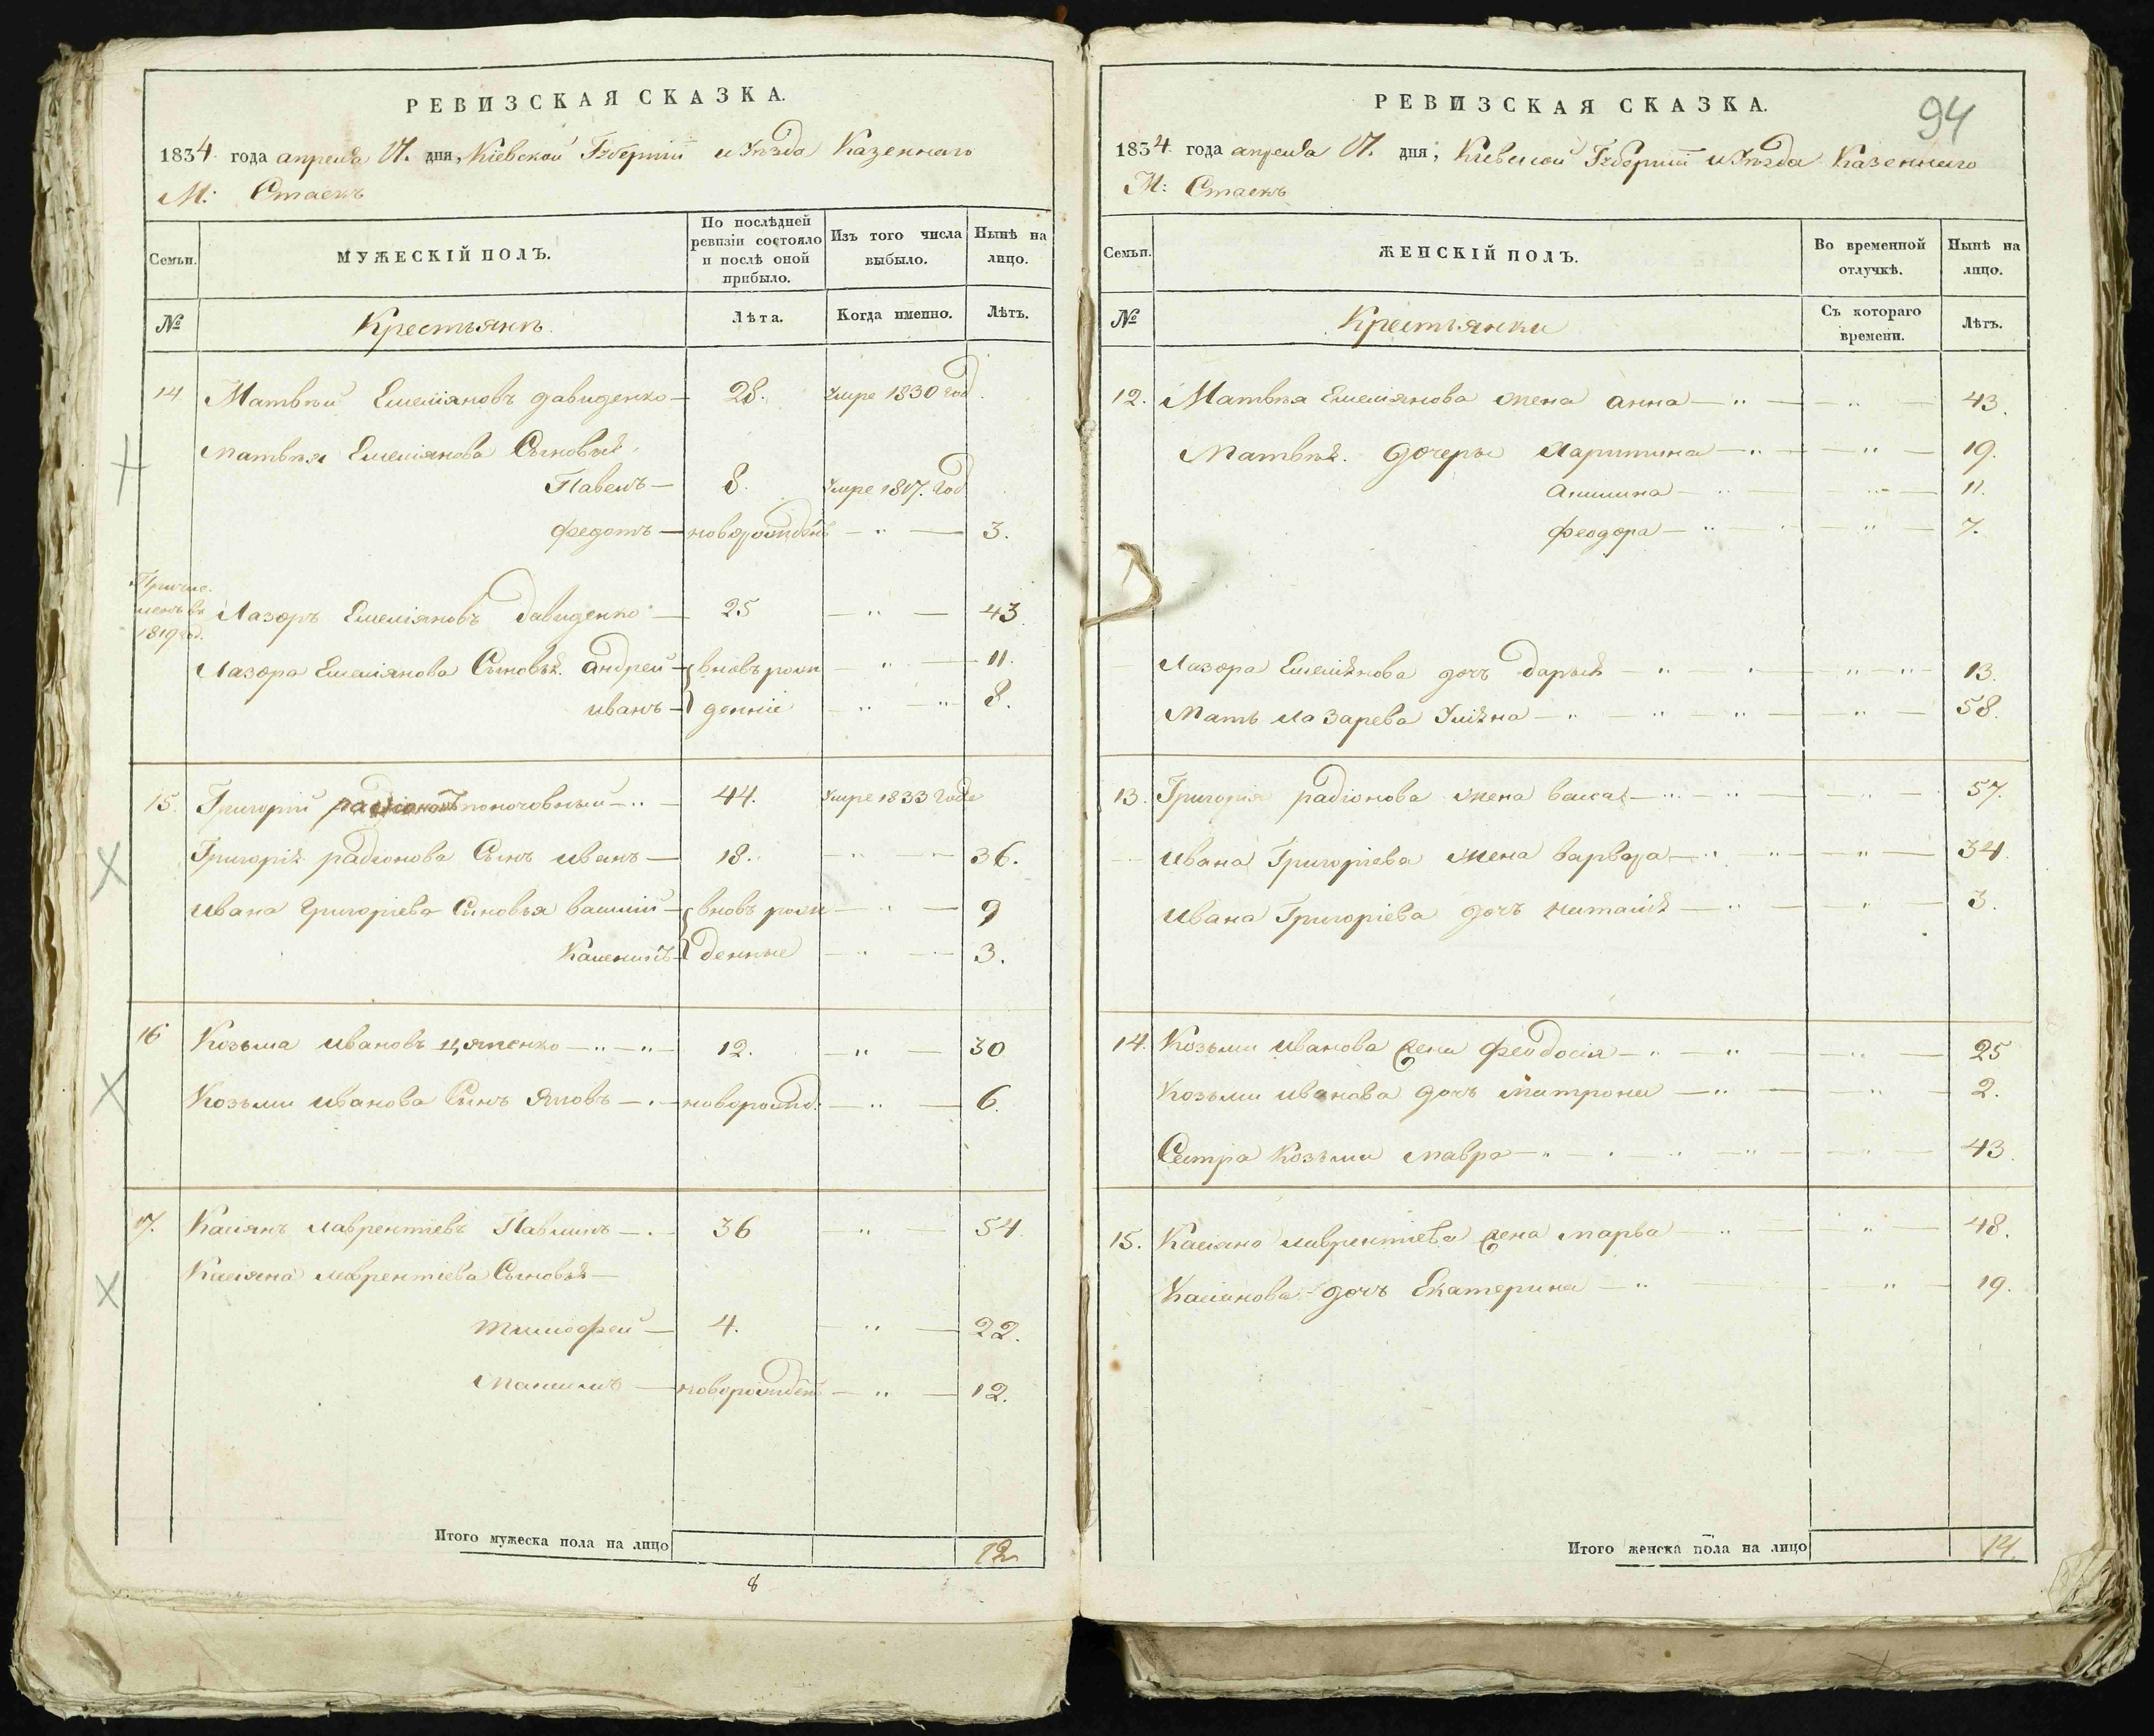 РЕВИЗСКАЯ СКАЗКА.
1834 года апреля 17. дня, Кіевской Губерніи и Уѣзда Казеннаго
М: Стаекъ
Семьи.
МУЖЕСКІЙ ПОЛЪ.
По послѣдней ревизіи состояло и послѣ оной прибыло.
Изъ того числа выбыло.
Нынѣ на лицо.
№
Крестьянъ
Лѣта.
Когда именно.
Лѣтъ.
14 Матвѣй Емеліяновъ давиденко — 28. Умре 1830 год.
Матвѣя Емеліянова Сыновья
Павелъ — 8. Умре 1817. год
Федотъ — новорожден — " — 3.
Причисленъ в 1819 год.
Лазоръ Емеліяновъ Давиденко — 25 — " — 43.
Лазора Емеліянова Сыновья. андрей — вновь рож — " — 11.
иванъ — денніе — " — " 8.
15. Григорій радіоновъ — " — 44. Умре 1833 Года
Григорія радіонова Сынъ иванъ — 18. — " — 36.
ивана Григоріева Сыновья василій — вновь рож — " — 9
— денные — " — 3.
16 Козьма ивановъ — " — " — 12. — " — 30
Козьми иванова Сынъ Яковъ — . — новорожд. — " — 6.
17. Касіянъ лаврентіевъ — . — 36 — " — 54
Касіяна лаврентіева Сыновья —
тимофей — 4. — " — 22.
Максимъ — новорожден — " — 12.
Итого мужеска пола на лицо 12
8
РЕВИЗСКАЯ СКАЗКА.
94
1834 года апреля 17. дня, Кіевской Губерніи и Уѣзда Казеннаго
М: Стаекъ
Семьи.
ЖЕНСКІЙ ПОЛЪ.
Во временной отлучкѣ.
Нынѣ на лицо.
№
Крестьянки
Съ котораго времени.
Лѣтъ.
12. Матвѣя Емеліянова жена анна — " — " — 43.
Матвѣя. дочеры — " — " — 19.
— " — " — 11.
феодора — " — " — 7.
Лазора Емеліянова дочъ Дарья — " — " — " 13.
Мать Лазарева Уліяна — " — " — " — 58.
13. Григорія радіонова жена васса — " — " — 57.
Ивана Григоріева жена варвара — " — " — 34.
Ивана Григоріева дочъ наталія — " — " — 3.
14. Козьми иванова жена феодосія — " — " — " — 25
Козьми иванова дочъ матрона — " — " — 2.
Сестра Козьми мавра — " — " — " — 43.
15. Касіяна лаврентіева жена марва — " — " — 48.
Касіянова дочъ Екатерина — " — " — 19.
Итого женска пола на лицо 14.